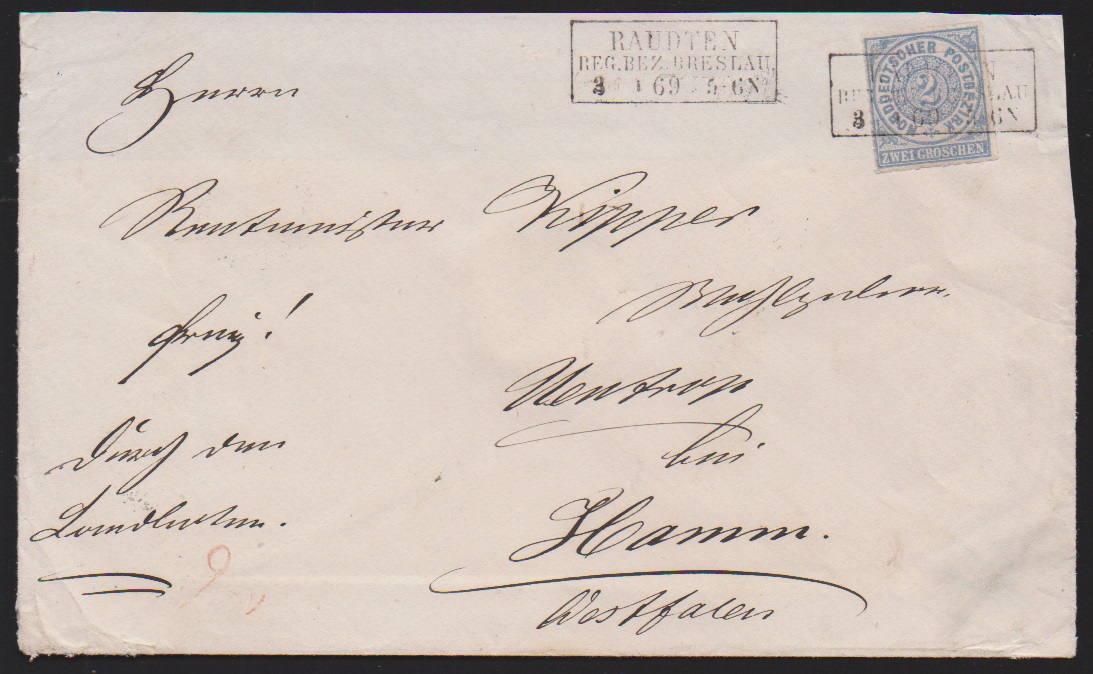 RAUDTEN
REG.BEZ.BRESLAU
3 1 69 5-6N
NORDDEUTSCHER POSTBEZIRK
2
ZWEI GROSCHEN
3 69 6N
Herrn
Rentmeister Kipper
frei!
Uentrop
bei
Durch den
Landboten.
Hamm.
Westfalen